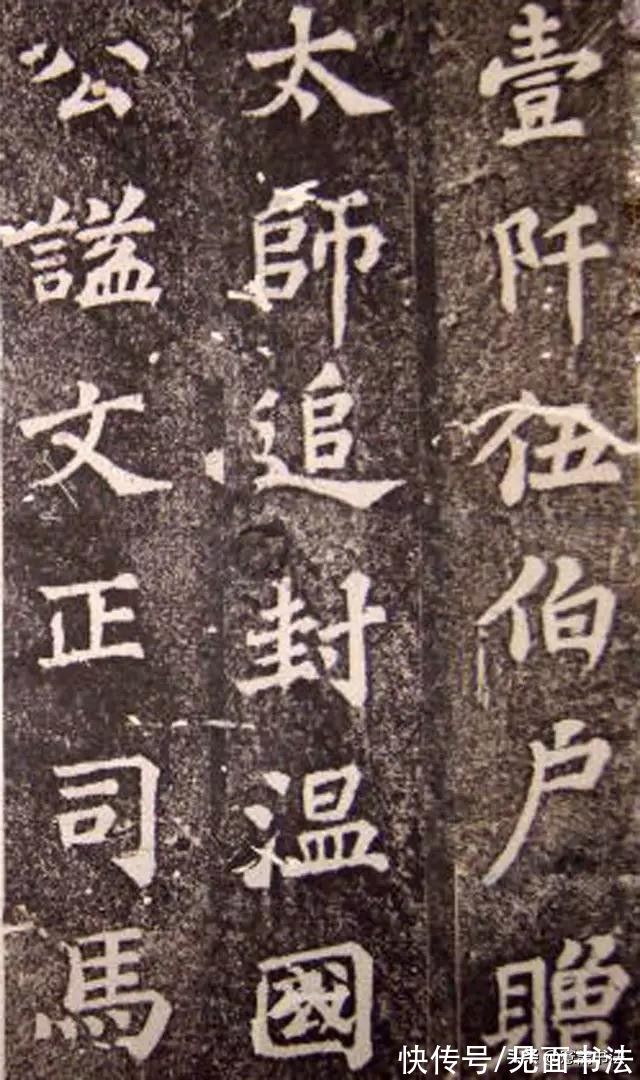 壹阡伍伯户贈
太師追封温國
公謚文正司馬
快传号/见面书法